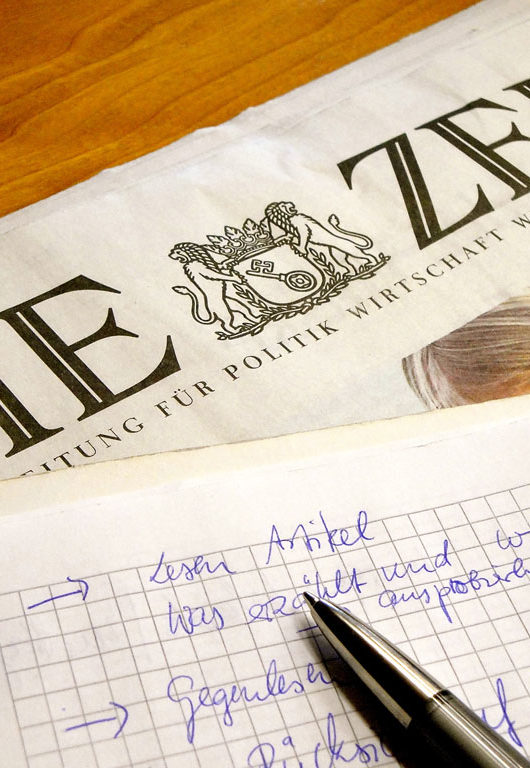 IE ZE
EITUNG FÜR POLITIK WIRTSCHAFT W
→ Lesen Artikel
Was erzählt und w
ausprobier
→ Gegenlesen